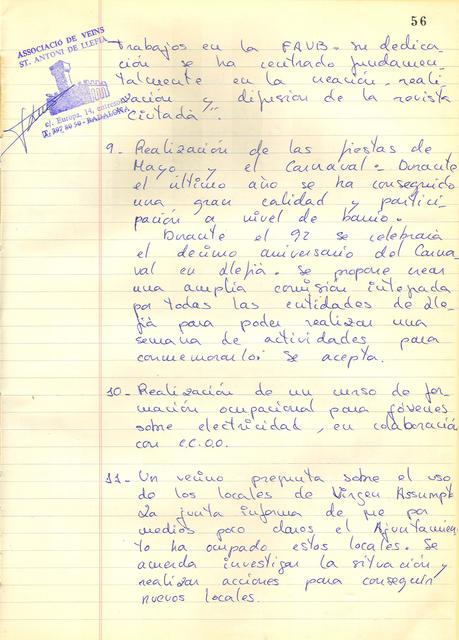 56
ASSOCIACIÓ DE VEINS
ST. ANTONI DE LLEFIÀ
c/. Europa, 14, entresol
BADALONA
Trabajos en la FAVB. Su dedica-
ción se ha centrado fundamen-
talmente en la creación, reali-
zación y difusion de la revista
"Ciutadà".
9- Realización de las fiestas de
Mayo y el Carnaval. Durante
el último año se ha conseguido
una gran calidad y partici-
pación a nivel de barrio.
Durante el 92 se celebraria
el decimo aniversario del Carna-
val en Llefià. Se propone crear
una amplia comisión integrada
por todas las entidades de Lle-
fià para poder realizar una
semana de actividades para
conmemorarlo: Se acepta.
10- Realización de un curso de for-
mación ocupacional para jóvenes
sobre electricidad, en colaboració
con CC.OO.
11- Un vecino pregunta sobre el uso
de los locales de Virgen Assumpt
La junta informa de que por
medios poco claros el Ajuntamien
to ha ocupado estos locales. Se
acuerda investigar la situación y
realizar acciones para conseguir
nuevos locales.